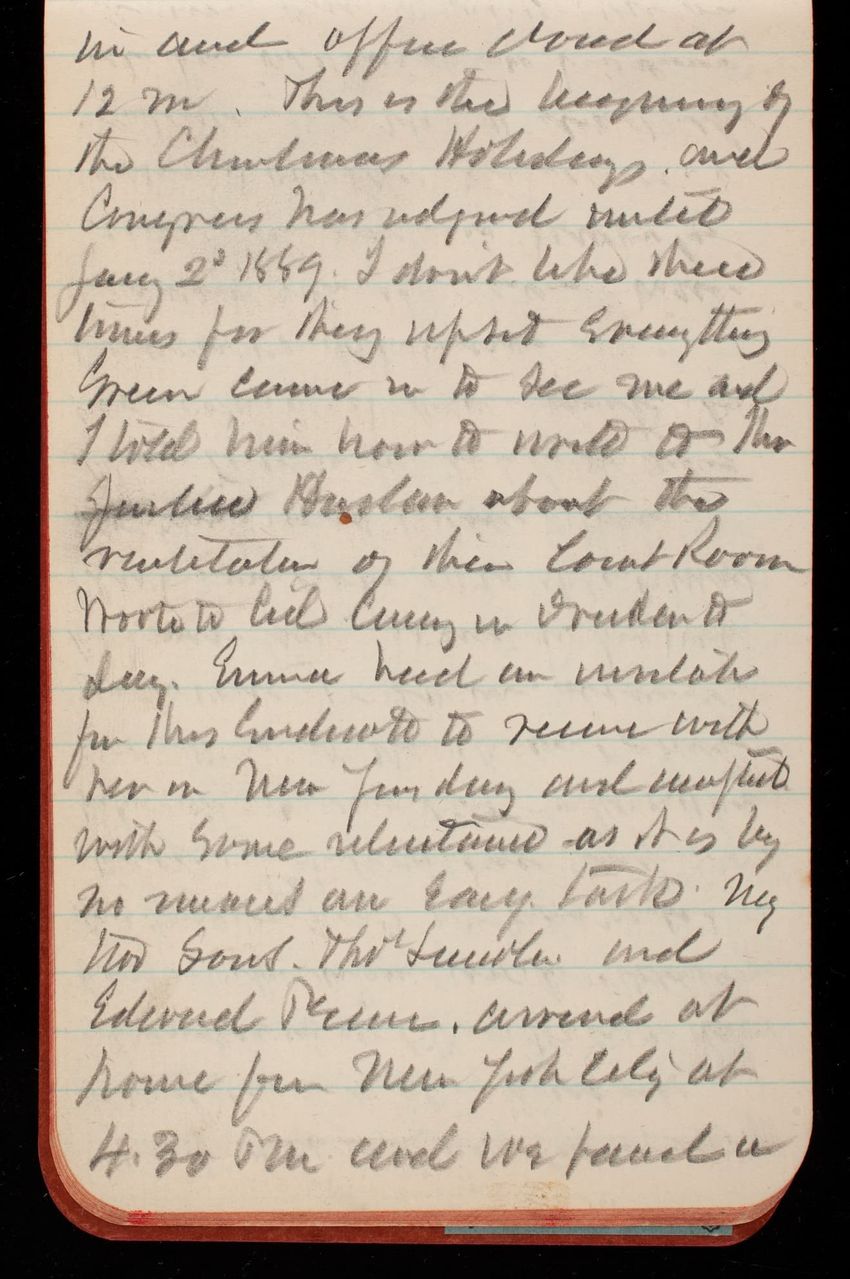 in and office closed at
12 m. This is the beginning of
the Christmas Holidays. and
Congress has adjrnd until
Jany 2d 1889. I don't like these
times for they upset Everything
Green came in to see me and
I told him how to write to Mr
Justice Harlan about the
ventilation of their Court Room
Wrote to Col Casey in
day. Emma had an invitatn
for Mrs Endicott to receive with
her on New Years day and accepted
with some reluctance as it is by
no means an Easy task. My
two Sons. Thos Lincoln and
Edward Pearce. arrived at
home from New York City at
4.30 PM and we found a